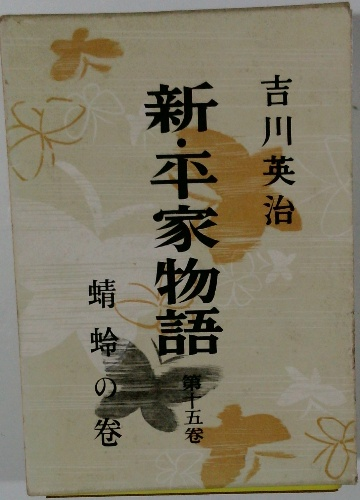 吉川英治
新・平家物語
第十五卷
蜻蛉の巻